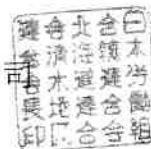 日本労働組
合総連合会
北海道連合
会清水地区
連合会長印
司